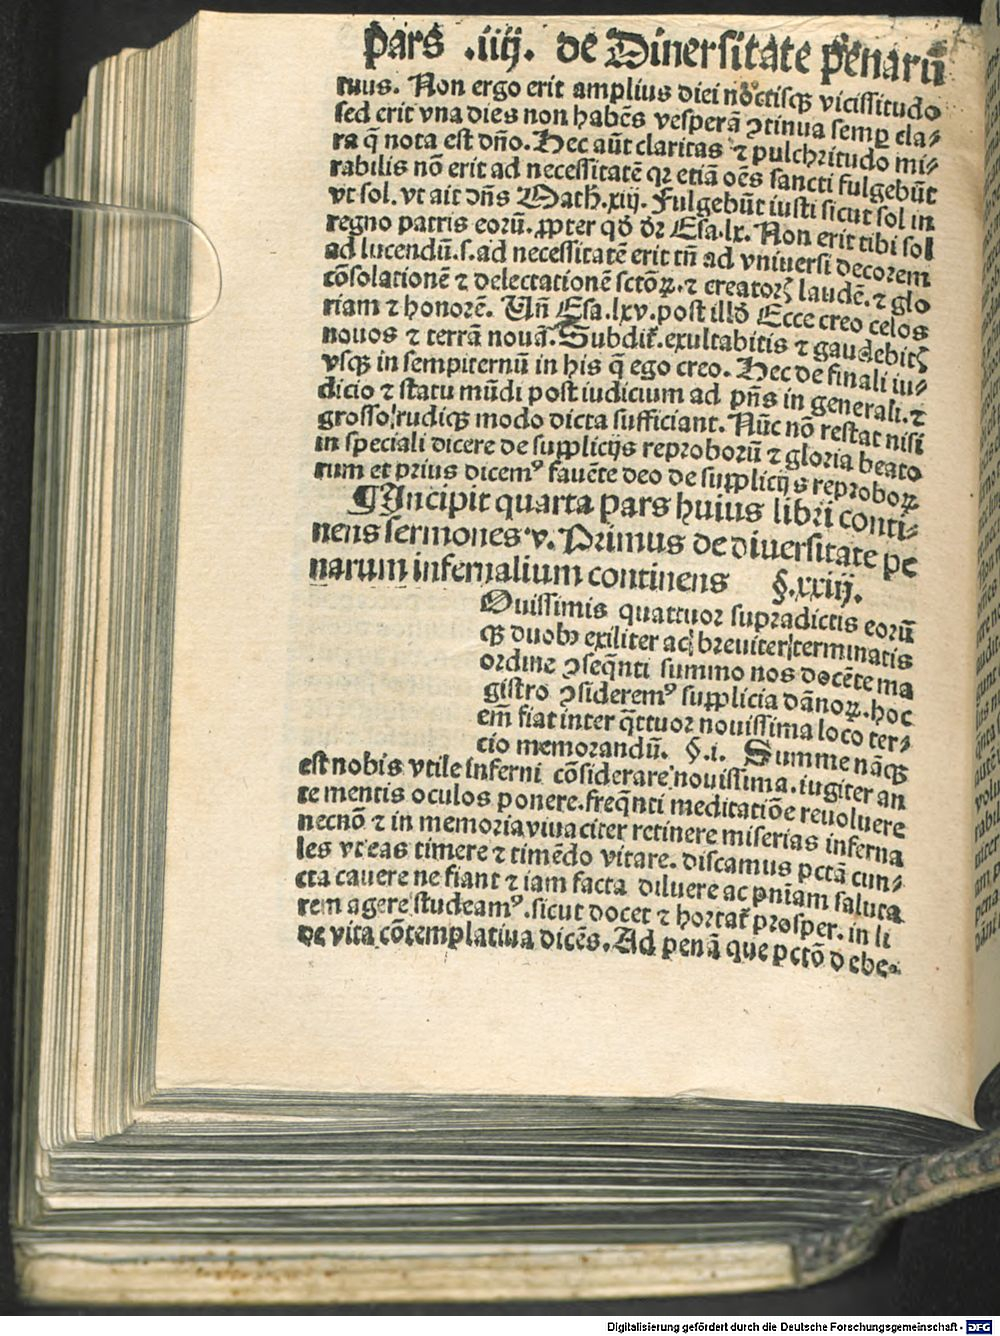 Pars .iiij. de Diuersitate penarū
tuus. Non ergo erit amplius diei noctisqꝫ vicissitudo
sed erit vna dies non habēs vesperā ꝯtinua semꝑ cla⸗
ra q̄ nota est dño. Hec aūt claritas ⁊ pulchritudo mi⸗
rabilis nō erit ad necessitatē qꝛ etiā oēs sancti fulgebūt
vt sol. vt ait dñs Math̄.xiij. Fulgebūt iusti sicut sol in
regno patris eorū. ꝓpter qd̄ dꝛ Esa.lx. Non erit tibi sol
ad lucendū.s.ad necessitatē erit tn̄ ad vniuersi decorem
cōsolationē ⁊ delectationē sctōꝝ.⁊ creatorꝭ laudē.⁊ glo
riam ⁊ honorē. Un̄ Esa.lxv.post illd̄ Ecce creo celos
nouos ⁊ terrā nouā. Subdit̄.exultabitis ⁊ gaudebitꝭ
vsqꝫ in sempiternū in his q̄ ego creo. Hec de finali iu⸗
dicio ⁊ statu mūdi post iudicium ad pn̄s in generali.⁊
grosso/rudiqꝫ modo dicta sufficiant. Nūc nō restat nisi
in speciali dicere de supplicijs reproborū ⁊ gloria beato
rum et prius dicemꝰ fauēte deo de supplicijs reproboꝝ
¶Incipit quarta pars huius libri conti⸗
nens sermones v. Primus de diuersitate pe
narum infernalium continens §.xxiij.
Ouissimis quattuor supradictis eorū
qꝫ duobꝫ exiliter ac/breuiter/terminatis
ordine ꝯseq̄nti summo nos docēte ma
gistro ꝯsideremꝰ supplicia dānoꝝ.hoc
em̄ fiat inter q̄ttuor nouissima loco ter⸗
cio memorandū. §.i. Summe nāqꝫ
est nobis vtile inferni cōsiderare nouissima.iugiter an
te mentis oculos ponere.freq̄nti meditatiōe reuoluere
necnō ⁊ in memoria viuaciter retinere miserias inferna
les vt eas timere ⁊ timēdo vitare. discamus pctā cun⸗
cta cauere ne fiant ⁊ iam facta diluere ac pn̄iam saluta
rem agere studeamꝰ.sicut docet ⁊ hortat̄ prosper. in li
de vita cōtemplatiua dicēs. Ad penā que pctō debe⸗
Digitalisierung gefördert durch die Deutsche Forschungsgemeinschaft - DFG